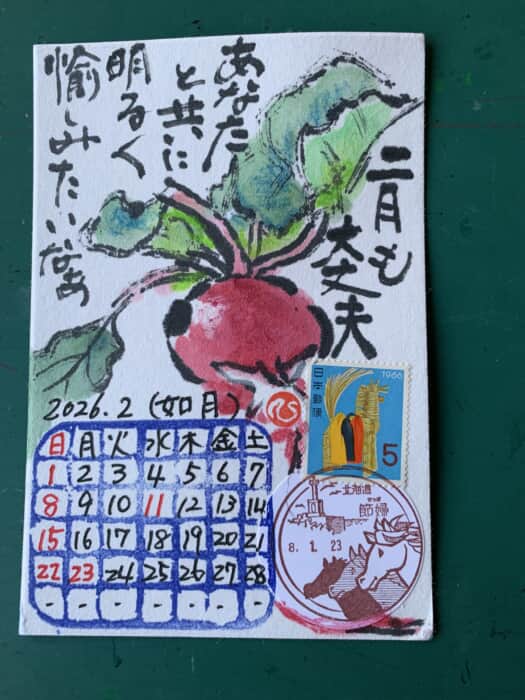 二月も
大丈夫
あなた
と共に
明るく
愉しみたいなあ
2026.2 (如月)
日 月 火 水 木 金 土
1 2 3 4 5 6 7
8 9 10 11 12 13 14
15 16 17 18 19 20 21
22 23 24 25 26 27 28
- - - - - - -
1966
日本郵便
5
北海道
節婦
せっぷ
8.1.23